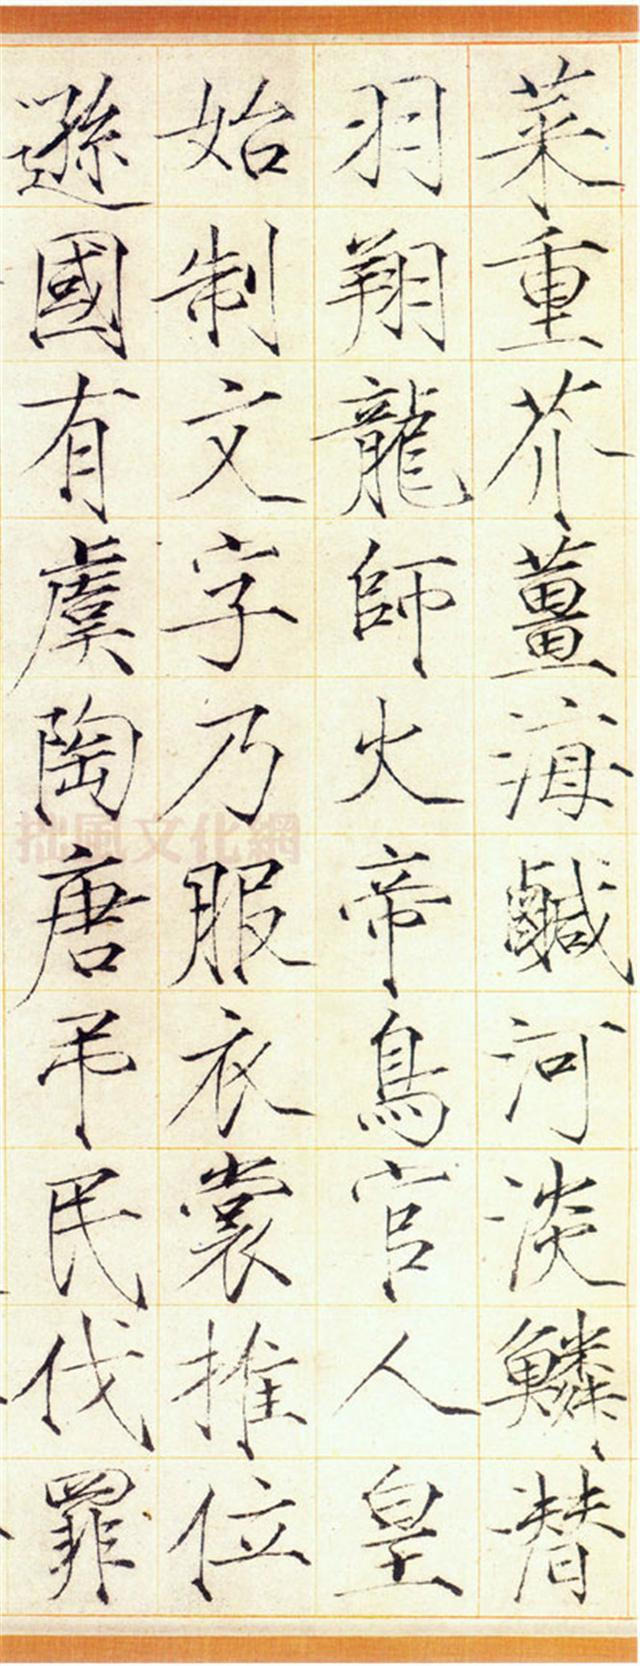 菜重芥薑海鹹河淡鱗潛
羽翔龍師火帝鳥官人皇
始制文字乃服衣裳推位
遜國有虞陶唐吊民伐罪
拙風文化網